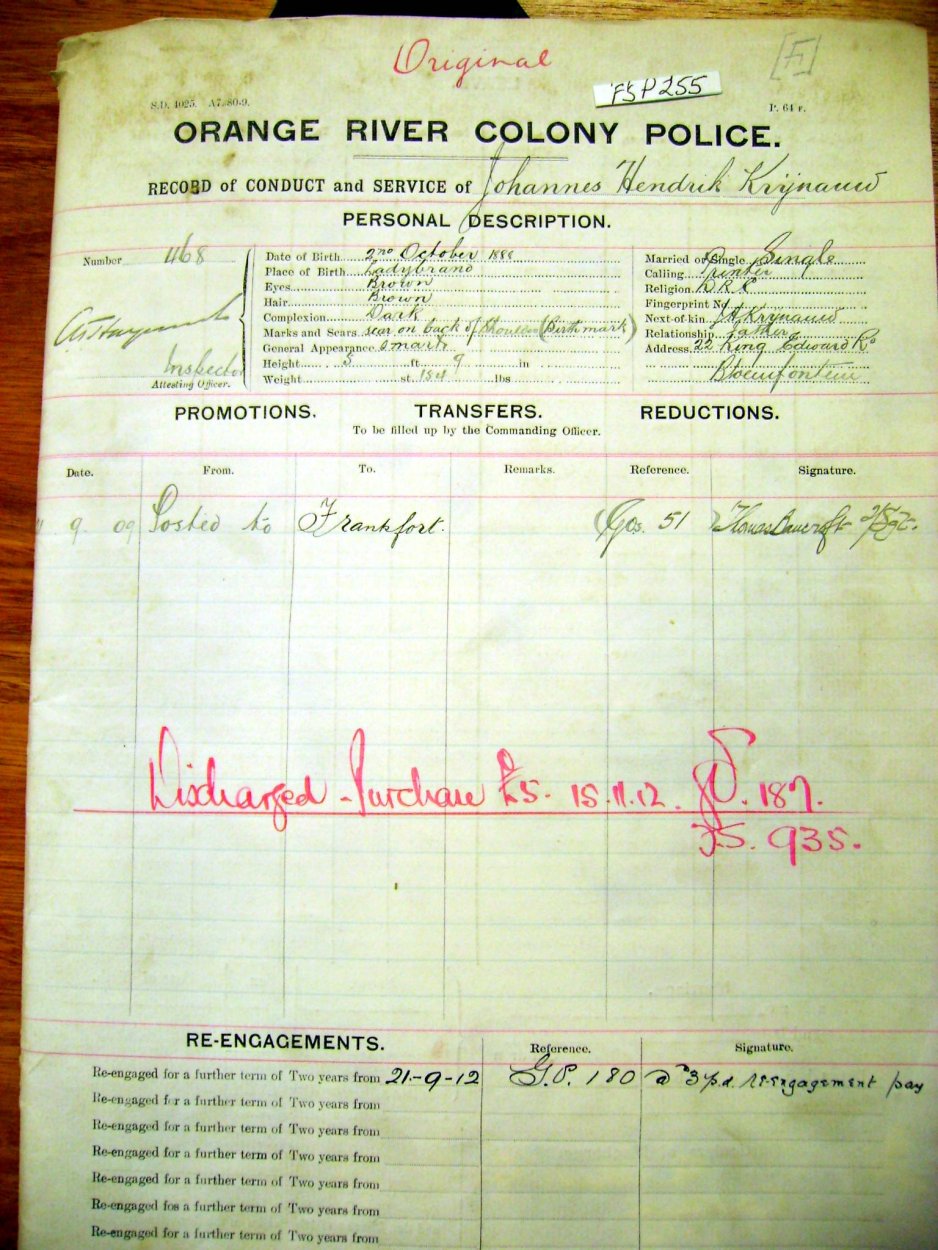 Original
[F]
FSP 255
S.D. 4025. A7. 80-9.
P. 64 r.
ORANGE RIVER COLONY POLICE.
RECORD of CONDUCT and SERVICE of Johannes Hendrik Krijnauw
PERSONAL DESCRIPTION.
Number 468
Inspector
Attesting Officer.
Date of Birth 2nd October 1888
Place of Birth Ladybrand
Eyes Brown
Hair Brown
Complexion Dark
Marks and Scars scar on back of shoulder (Birthmark)
General Appearance smart
Height 5 ft 9 in
Weight st. 154 lbs
Married or Single Single
Calling Printer
Religion D.R.C
Fingerprint No
Next-of-kin Krijnauw
Relationship father
Address 22 King Edward Rd
Bloemfontein
PROMOTIONS. TRANSFERS. REDUCTIONS.
To be filled up by the Commanding Officer.
Date. From. To. Remarks. Reference. Signature.
9 09 Posted to Frankfort. 51
Discharged - Purchase £5. 15.11.12. 187.
935.
RE-ENGAGEMENTS. Reference. Signature.
Re-engaged for a further term of Two years from 21-9-12 G.P. 180 @ 3d p.d. re-engagement pay
Re-engaged for a further term of Two years from
Re-engaged for a further term of Two years from
Re-engaged for a further term of Two years from
Re-engaged for a further term of Two years from
Re-engaged for a further term of Two years from
Re-engaged for a further term of Two years from